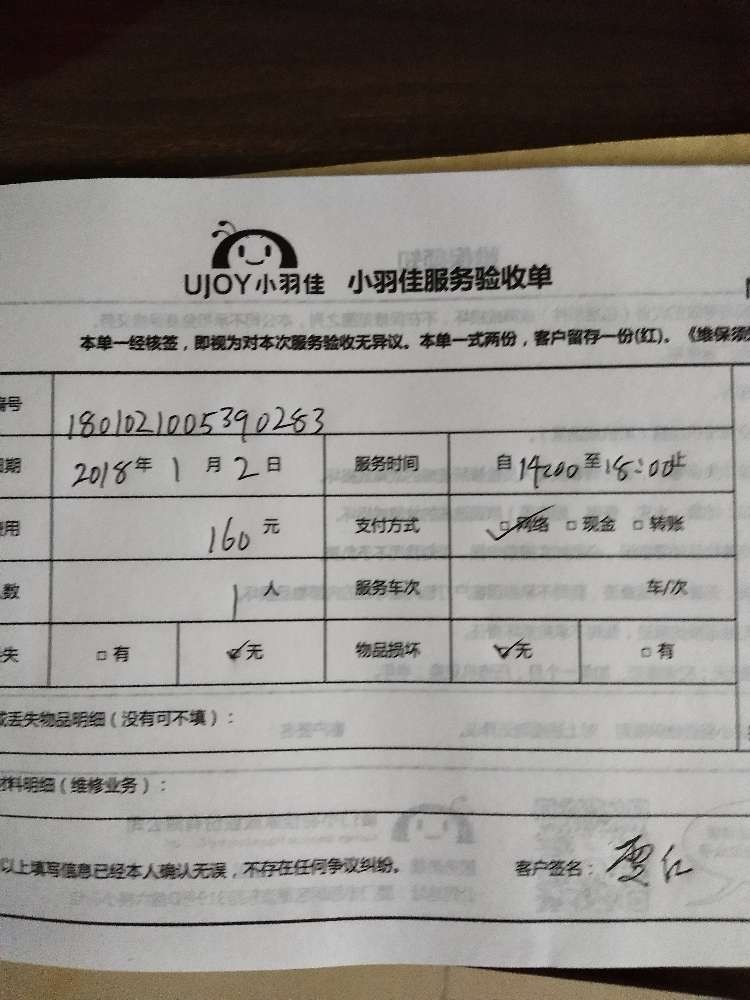 UJOY小羽佳 小羽佳服务验收单
本单一经核签，即视为对本次服务验收无异议。本单一式两份，客户留存一份(红)。《维保须
编号 1801021005390283
日期 2018年 1月 2日 服务时间 自 14:00 至 18:00 止
费用 160 元 支付方式 ☑网络 □现金 □转账
人数 1人 服务车次 车/次
失 □有 ☑无 物品损坏 ☑无 □有
或丢失物品明细（没有可不填）：
材料明细（维修业务）：
以上填写信息已经本人确认无误，不存在任何争议纠纷。 客户签名：